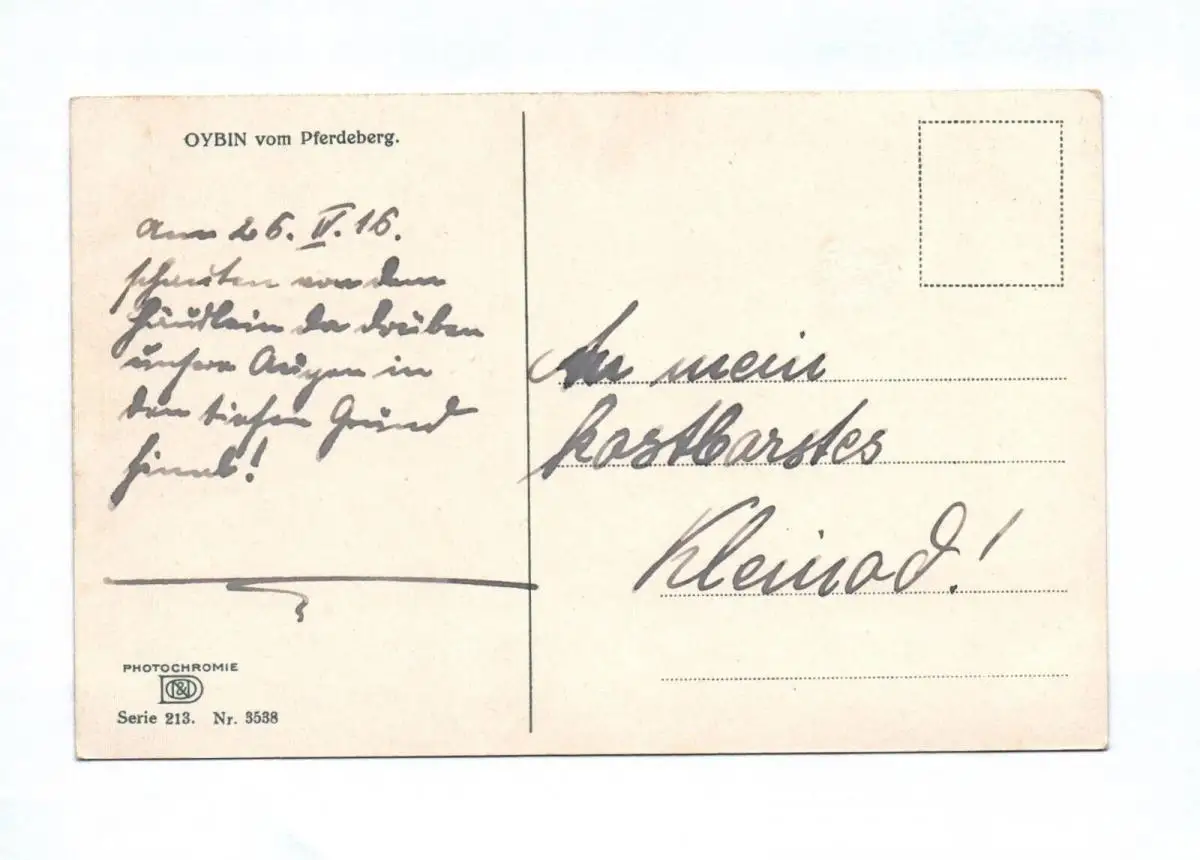 OYBIN vom Pferdeberg.
Am 26. IV. 16.
schauten von dem
Häuslein da drüben
unsere Augen in
den tiefen Grund
hinab!
PHOTOCHROMIE
D&N
Serie 213. Nr. 3538
An mein
kostbarstes
Kleinod!